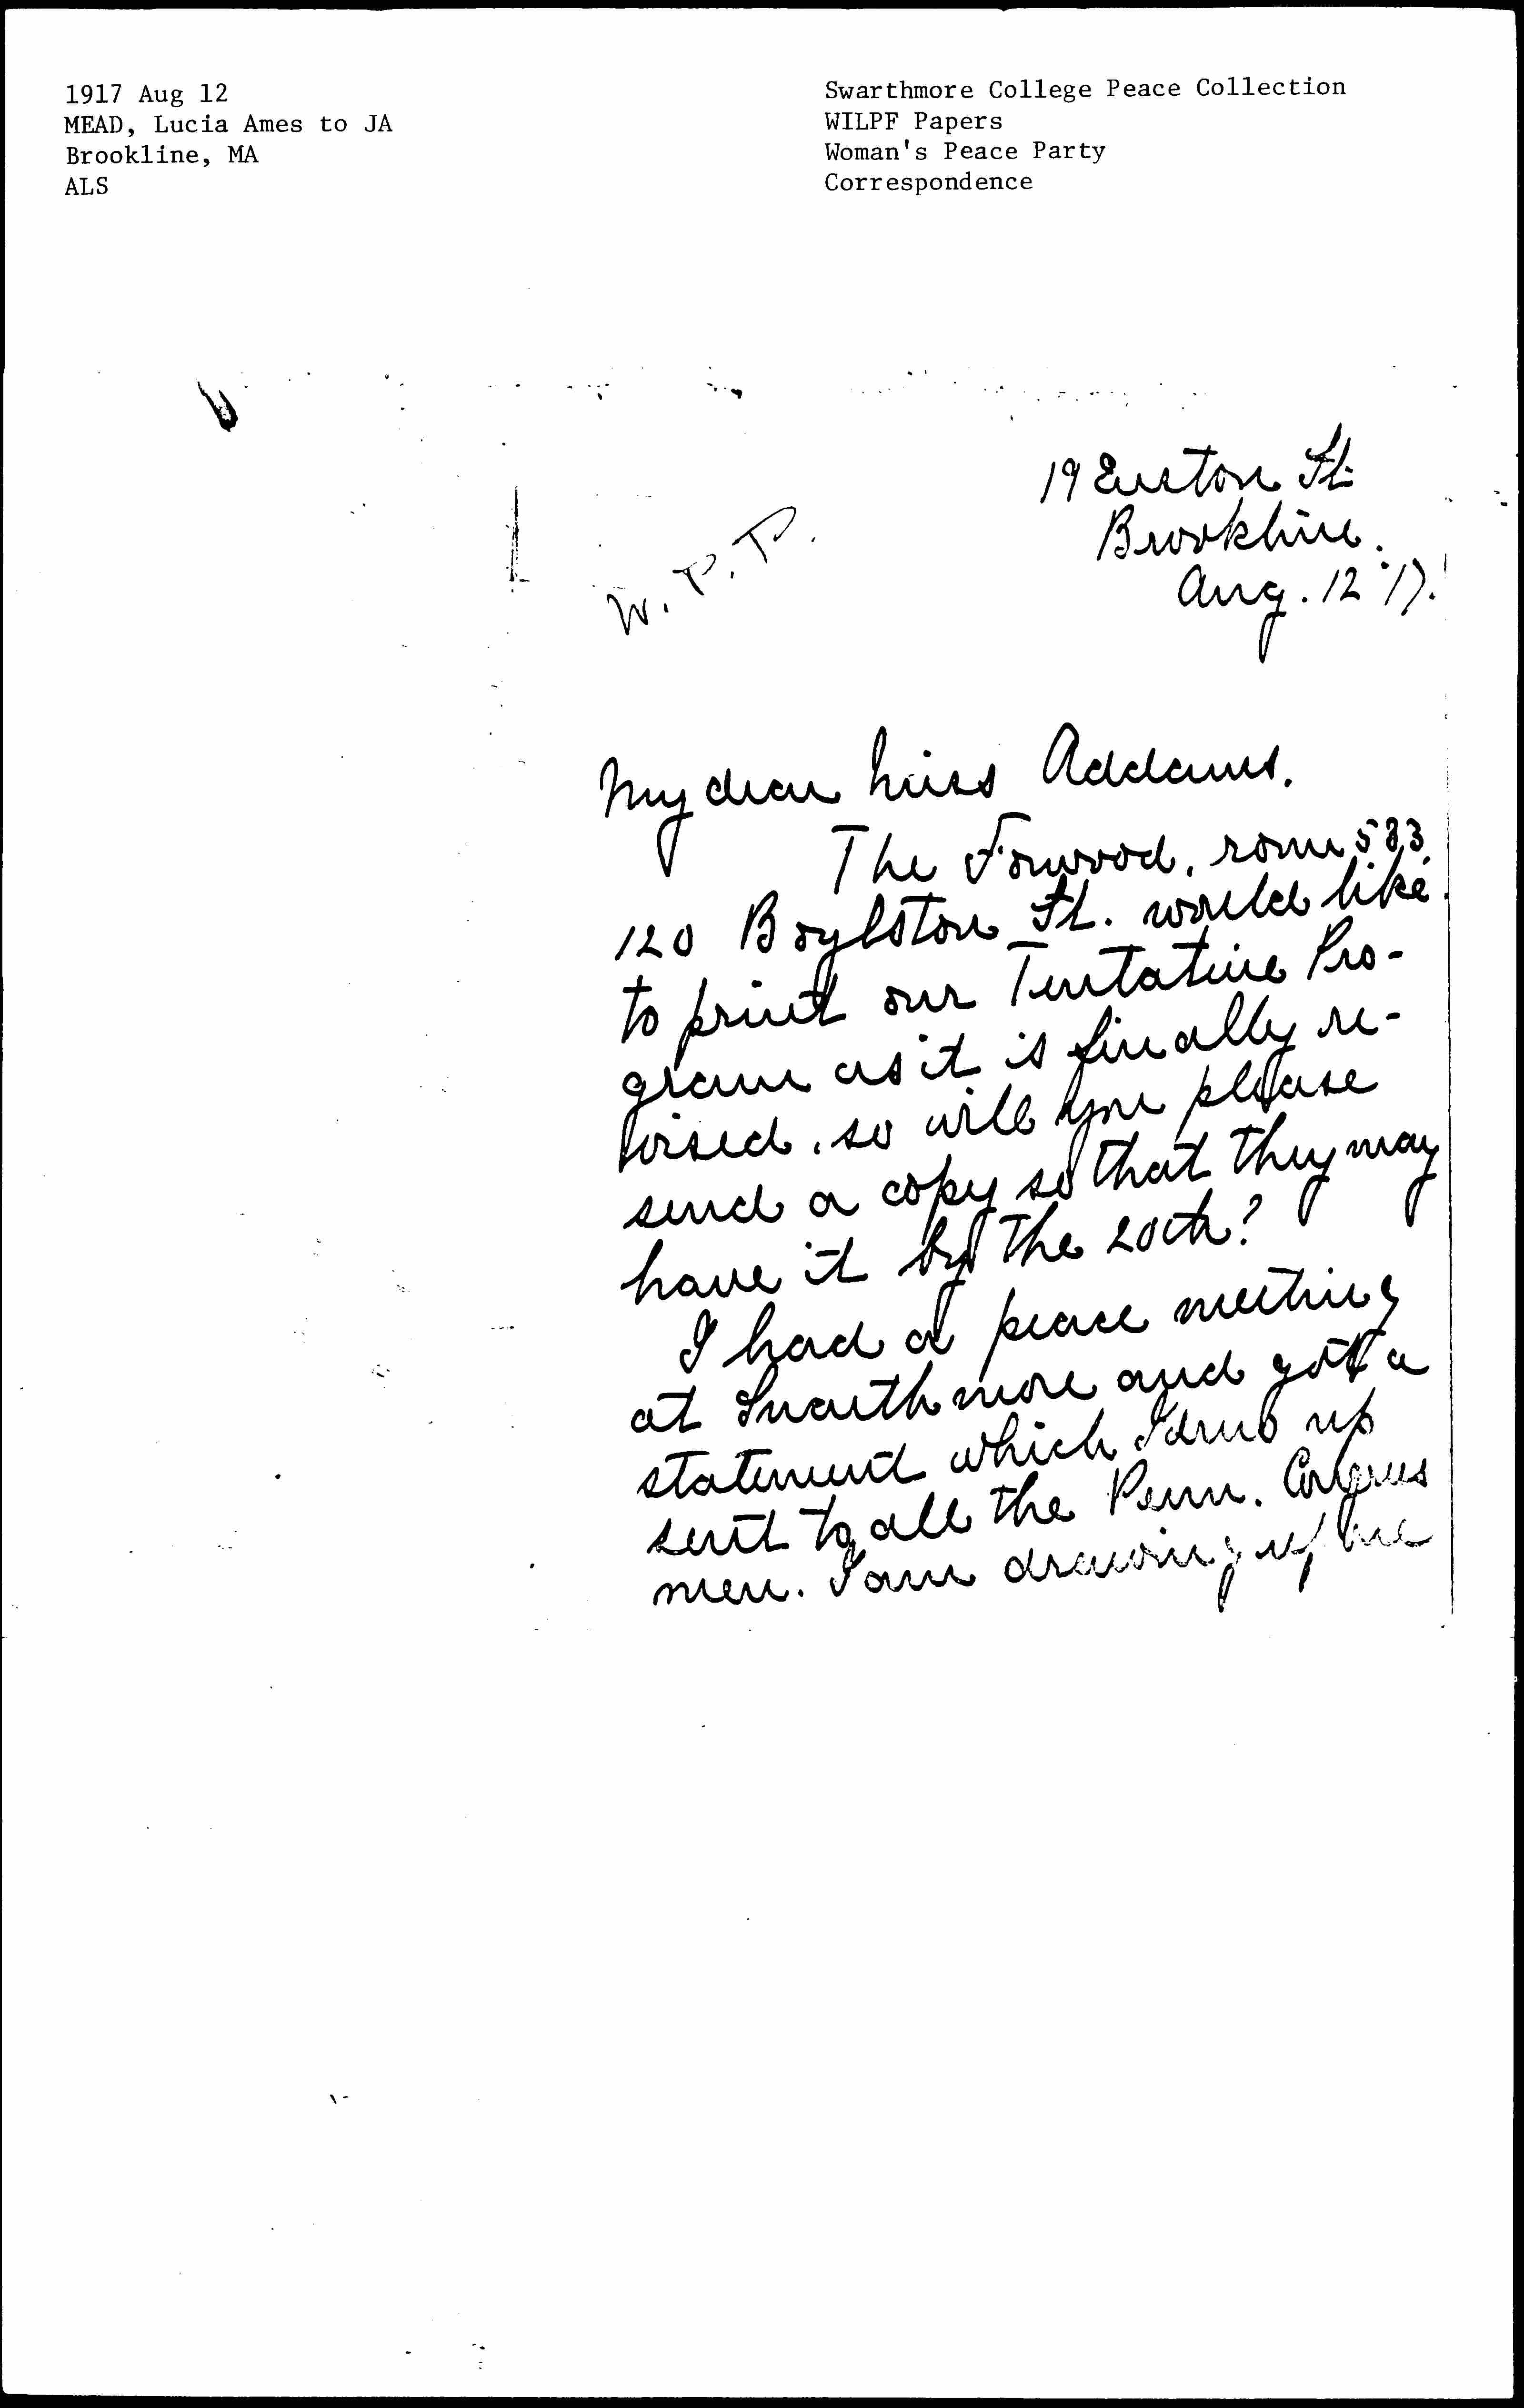 1917 Aug 12
MEAD, Lucia Ames to JA
Brookline, MA
ALS
Swarthmore College Peace Collection
WILPF Papers
Woman's Peace Party
Correspondence
W. P. P.
19 Euston St.
Brookline.
Aug. 12 '17.
My dear Miss Addams.
The Forwood, room 533
120 Boylston St. would like
to print our Tentative Pro-
gram as it is finally re-
vised, so will you please
send a copy so that they may
have it by the 20th?
I had a peace meeting
at Swarthmore and got a
statement which I drew up
sent to all the Penn. Congress
men. I am drawing up